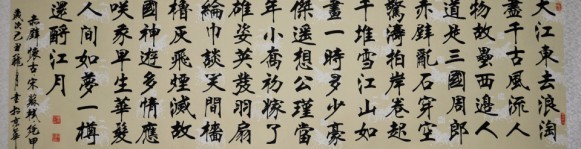 大江東去浪淘
盡千古風流人
物故壘西邊人
道是三國周郎
赤壁亂石穿空
驚濤拍岸卷起
千堆雪江山如
畫一時多少豪
傑遙想公瑾當
年小喬初嫁了
雄姿英發羽扇
綸巾談笑間檣
櫓灰飛煙滅故
國神遊多情應
咲我早生華髮
人間如夢一樽
還酹江月
赤壁懷古宋蘇軾
歲次己丑書於京華